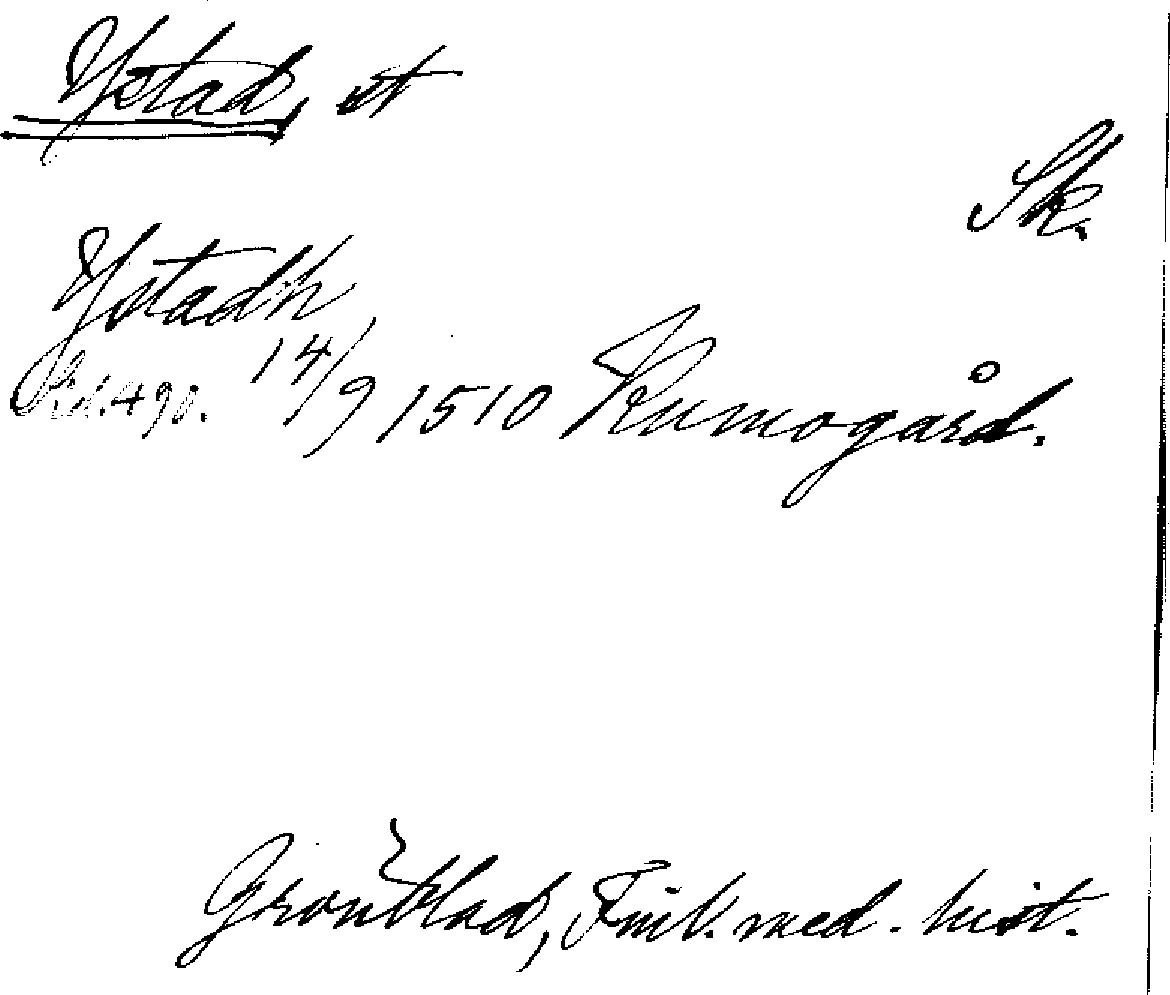 Ystad, st
Sk.
Ystadh
Sid. 490. 14/9 1510 Kumogård.
Grönblad, Fink. med. hist.